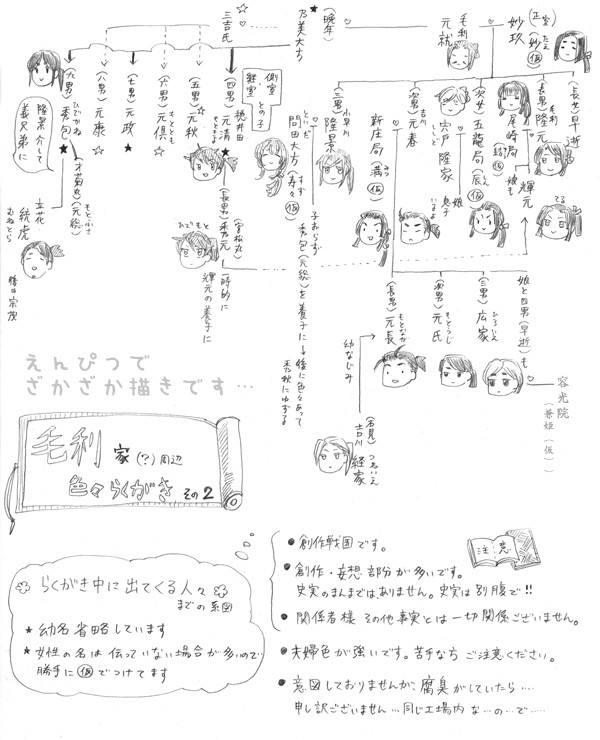 妙玖
(正室)
(妙仮)
たえ
毛利
元就
(晩年)
乃美大方
三吉氏
長女早逝
(長男)
毛利
隆元
尾崎局
輝元
てる
娘も
(次女)
五龍局
(辰仮)
宍戸
隆家
ししど
娘
息子
(次男)
吉川
元春
新庄局
(満仮)
みつ
(三男)
小早川
隆景
問田大方
といだ
(寿々仮)
すず
子おらず
秀包(元総)を養子に→後に色々あって
秀秋にゆずる
側室
継室
との子
(四男)
穂井田
元清
(長男)
(宮松丸)
秀元
ひでもと
一時的に
輝元の養子に
(五男)
元秋
(六男)
元倶
もととも
(七男)
元政
(八男)
元康
(九男)
秀包
ひでかね
才菊丸(元総)
もとふさ
隆景介して
義兄弟に
立花
統虎
むねとら
後の宗茂
娘と四男(早逝)も
(三男)
広家
ひろいえ
(次男)
元氏
もとうじ
(長男)
元長
もとなが
幼なじみ
(石見)
吉川
経家
つねいえ
容光院
(兼姫(仮))
えんぴつで
ざかざか描きです…
毛利家(?)周辺
色々らくがき その2
注意
●創作戦国です。
●創作・妄想部分が多いです。
史実のまんまではありません。史実は別腹で!!
●関係者様 その他事実とは一切関係ございません。
●夫婦色が強いです。苦手な方ご注意ください。
●意図しておりませんが、腐臭がしていたら……
申し訳ございません…同じ工場内な…の…で……
らくがき中に出てくる人々
までの系図
★幼名省略しています
★女性の名は伝っていない場合が多いので
勝手に仮でつけてます